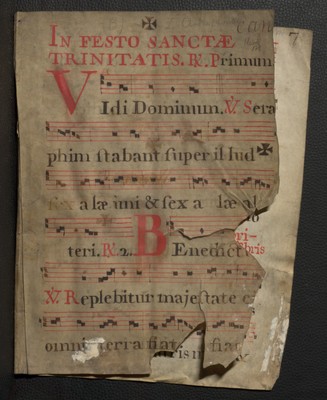 IN FESTO SANCTÆ
TRINITATIS. ℟. Primum
VIdi Dominum. ℣. Sera
phim stabant super illud
sex alæ uni & sex a læ al
teri. ℟. 2. BEnedict
℣. Replebitur majestate
omnis terra